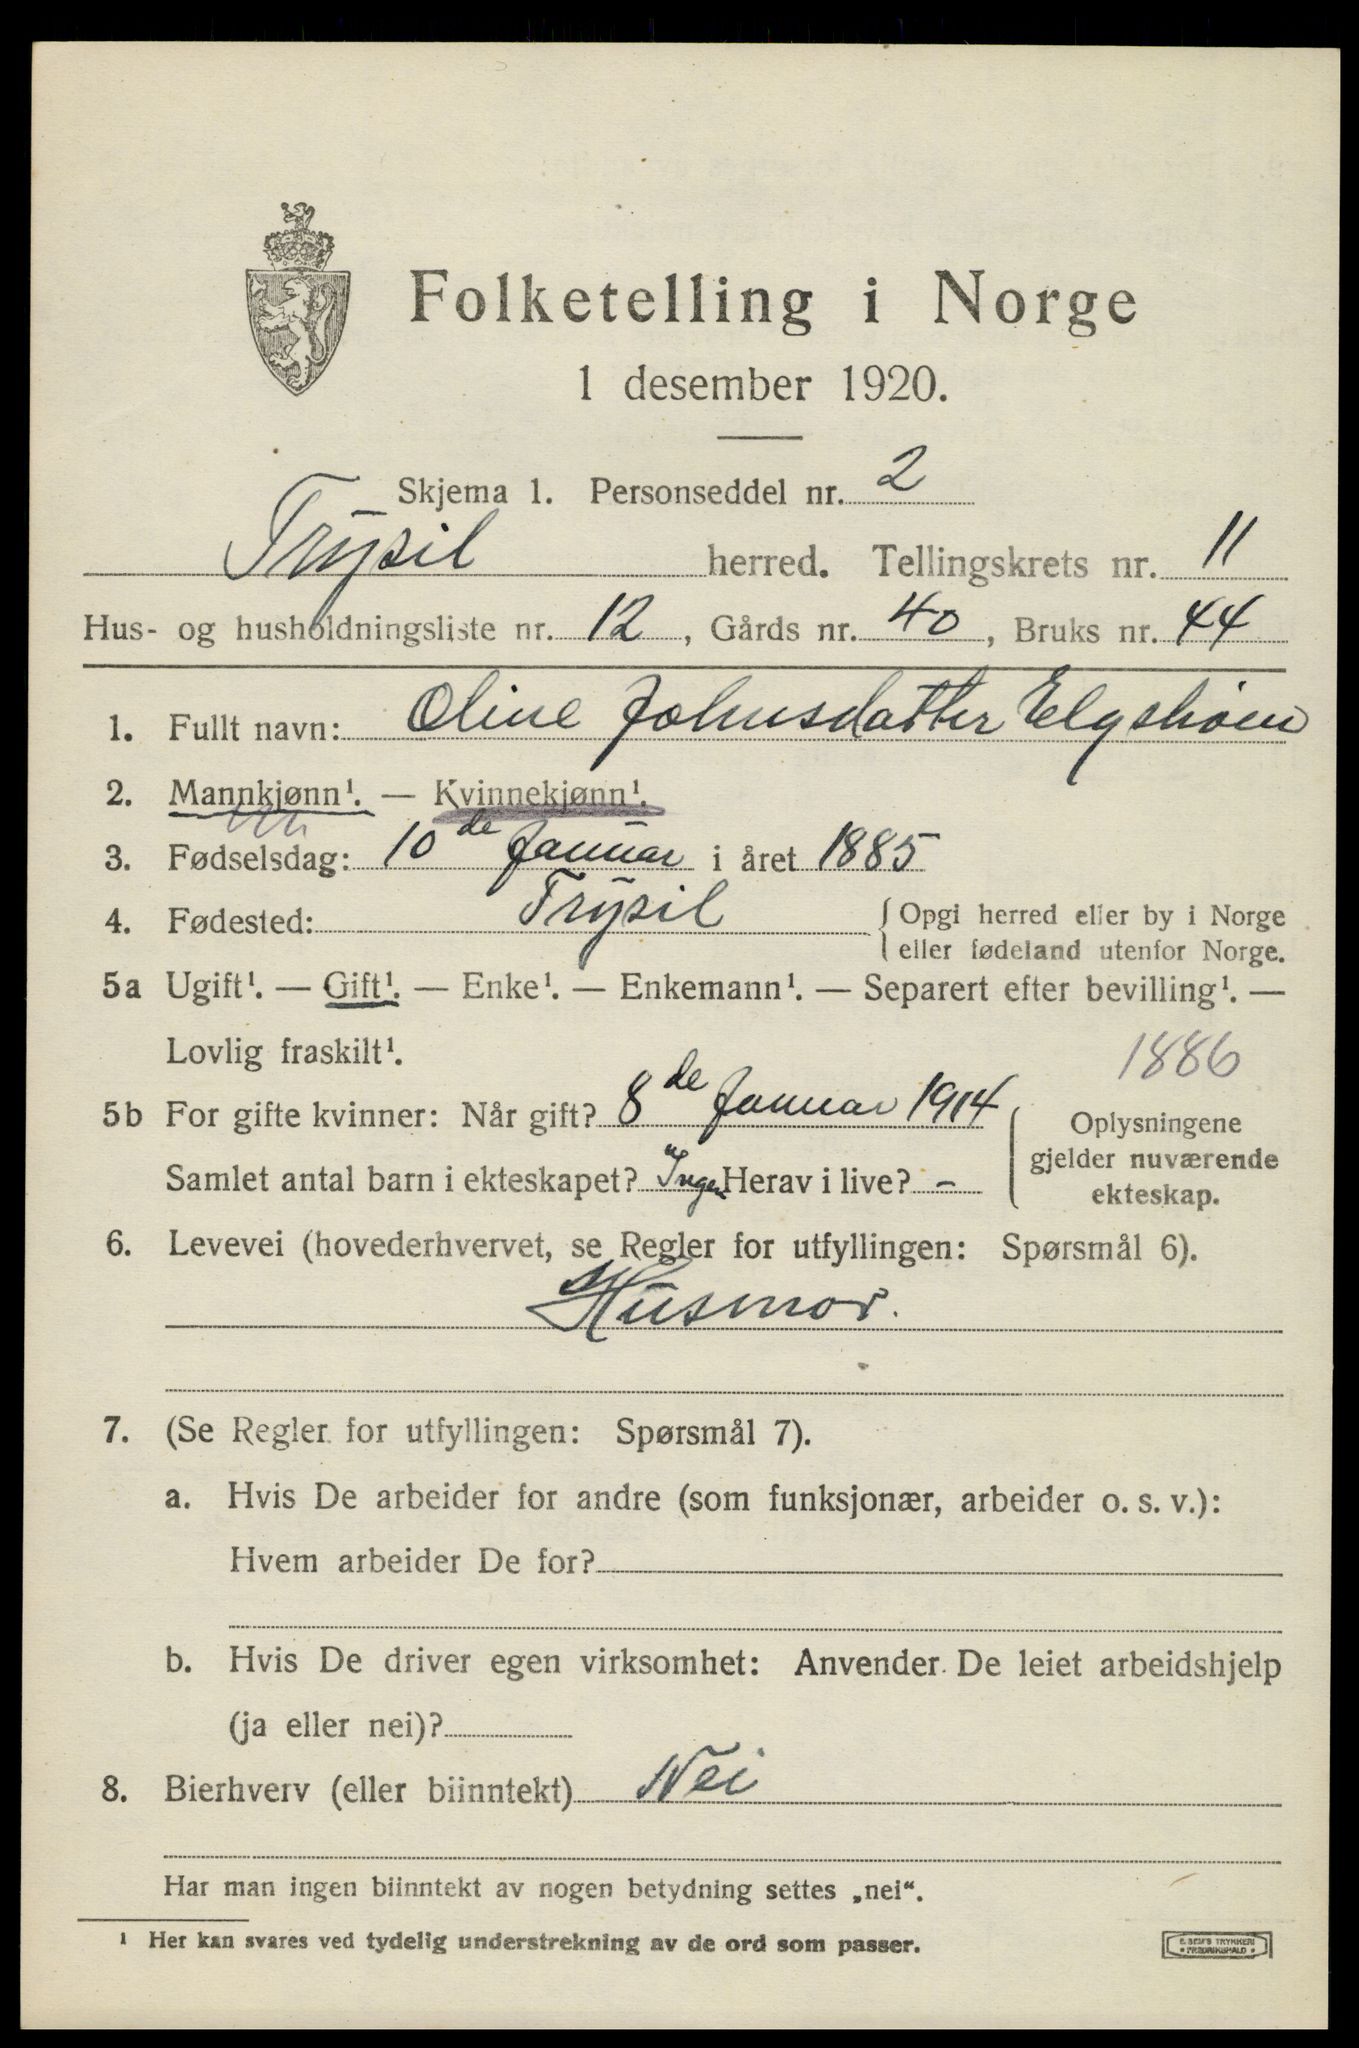 Folketelling i Norge
1 desember 1920.
Skjema 1. Personseddel nr. 2
Trysil herred. Tellingskrets nr. 11
Hus- og husholdningsliste nr. 12, Gårds nr. 40, Bruks nr. 44
1. Fullt navn: Oline Johnsdatter Elgshøen
2. Mannkjønn¹. — Kvinnekjønn¹.
3. Fødselsdag: 10de Januar i året 1885
4. Fødested: Trysil { Opgi herred eller by i Norge
eller fødeland utenfor Norge.
5a Ugift¹. — Gift¹. — Enke¹. — Enkemann¹. — Separert efter bevilling¹. —
Lovlig fraskilt¹.
1886
5b For gifte kvinner: Når gift? 8de Januar 1914
Samlet antal barn i ekteskapet? Ingen Herav i live? -
Oplysningene
gjelder nuværende
ekteskap.
6. Levevei (hovederhvervet, se Regler for utfyllingen: Spørsmål 6).
Husmor.
7. (Se Regler for utfyllingen: Spørsmål 7).
a. Hvis De arbeider for andre (som funksjonær, arbeider o. s. v.):
Hvem arbeider De for?
b. Hvis De driver egen virksomhet: Anvender De leiet arbeidshjelp
(ja eller nei)?
8. Bierhverv (eller biinntekt) Nei
Har man ingen biinntekt av nogen betydning settes „nei“.
¹ Her kan svares ved tydelig understrekning av de ord som passer.
E. SEM'S TRYKKERI
* FREDRIKSHALD *